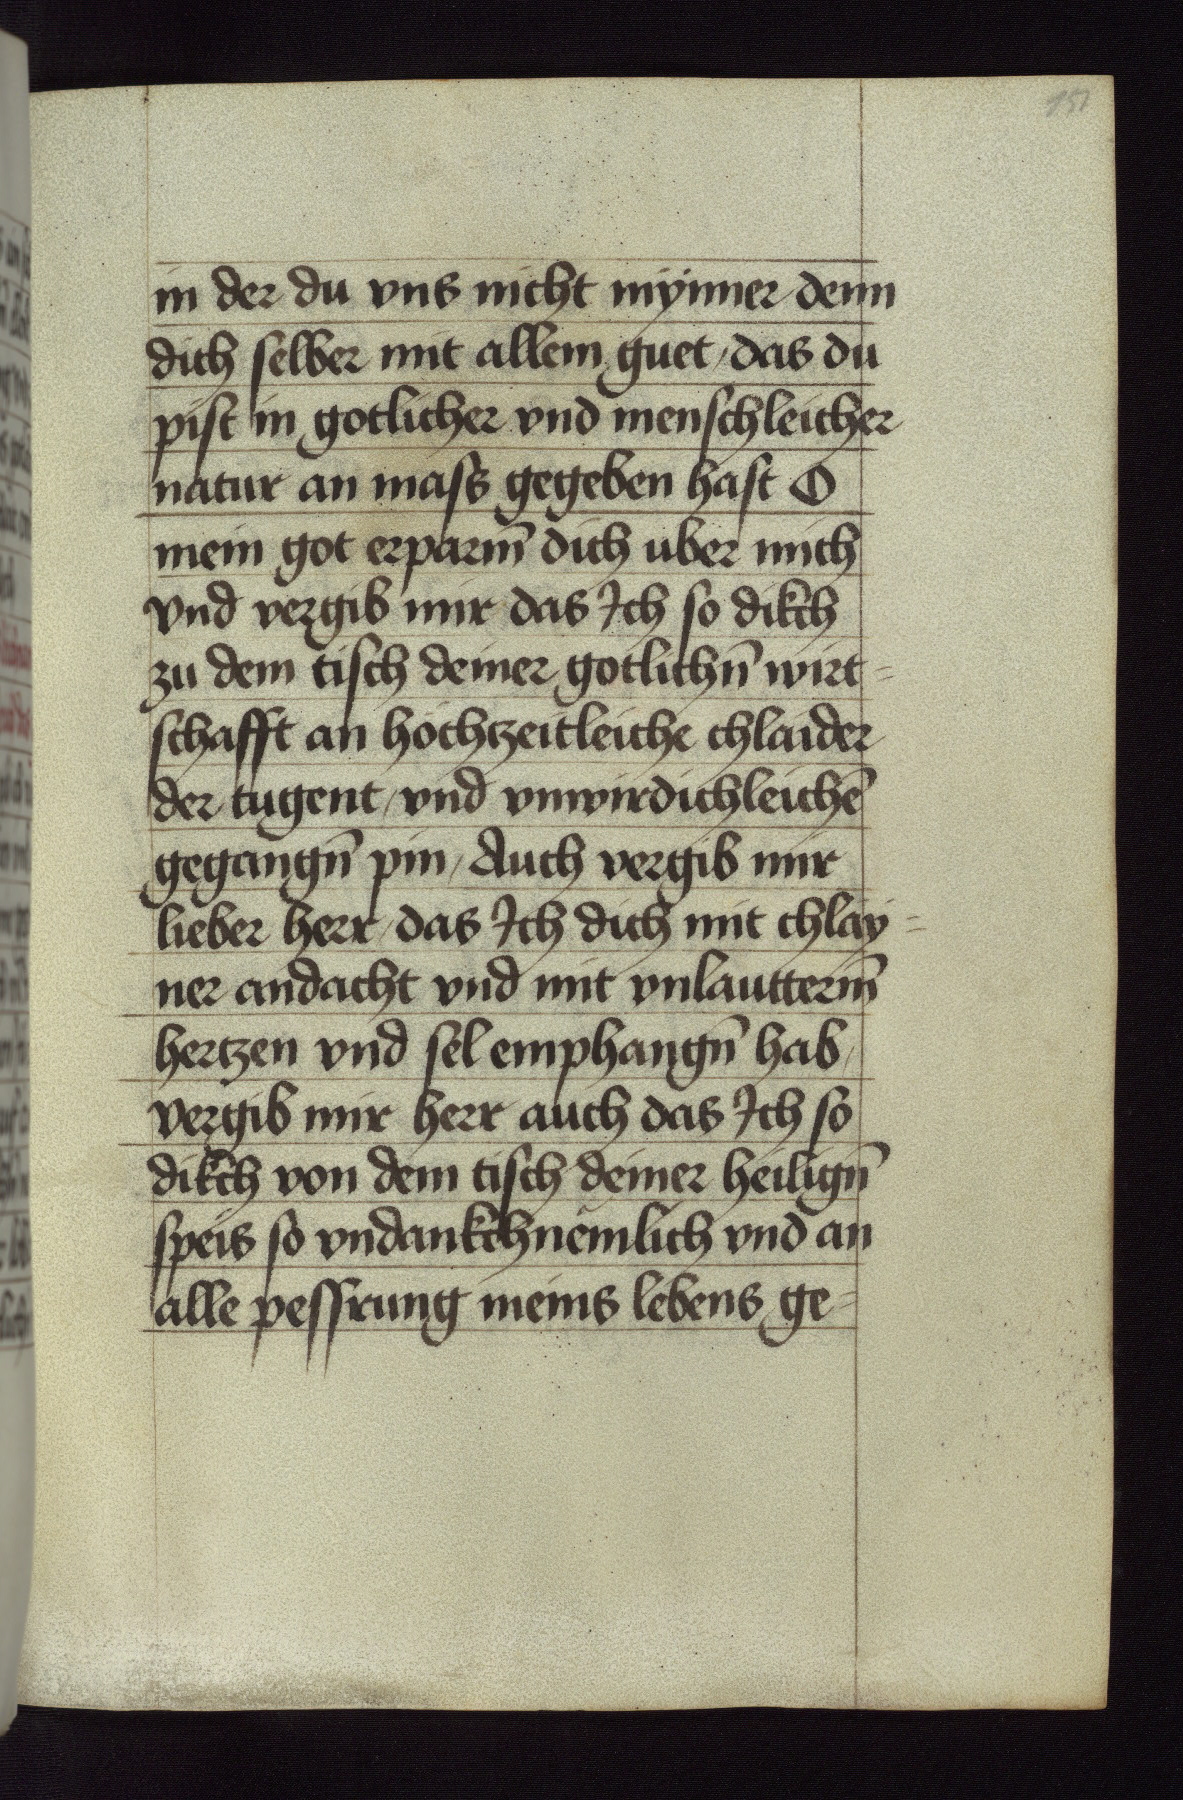 151
in der du vns nicht mÿnner denn
dich selber mit allem guet / das du
pist in gotlicher vnd menschleicher
natur an mass gegeben hast O
mein got erparm̄ dich uber mich
vnd vergib mir das Ich so dikch
zu dem tisch deiner gotlichn̄ wirt=
schafft an hochtzeitleiche chlaider
der tugent / vnd vnwirdichleichē
gegangn̄ pin / Auch vergib mir
lieber herr / das Ich dich mit chlay=
ner andacht vnd mit vnlautterm̄
hertzen vnd sel emphangn̄ hab /
vergib mir herr auch das Ich so
dikch von dem tisch deiner heilign̄
speis so vndankchnemlich vnd an
alle pessrung meins lebens ge=